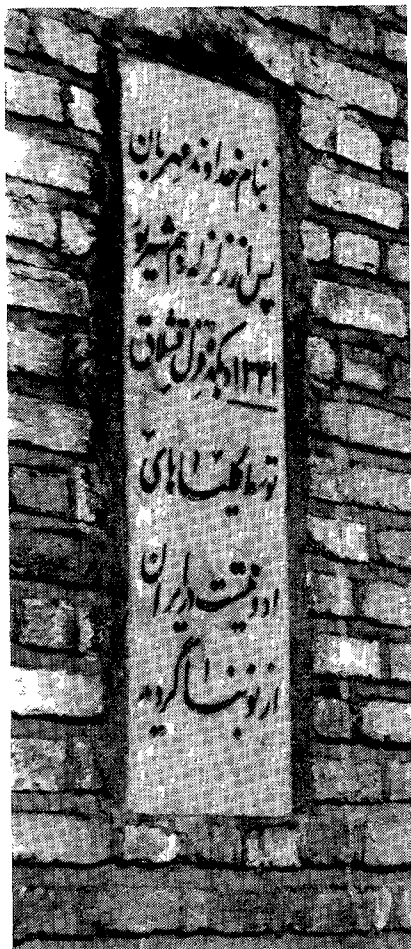 بنام خداوند مهربان
پس از زلزله دهم شهریور
۱۳۴۱ دهکده قزل قشلاق
توسط کلیساهای
در ایران
از نو بنا گردید